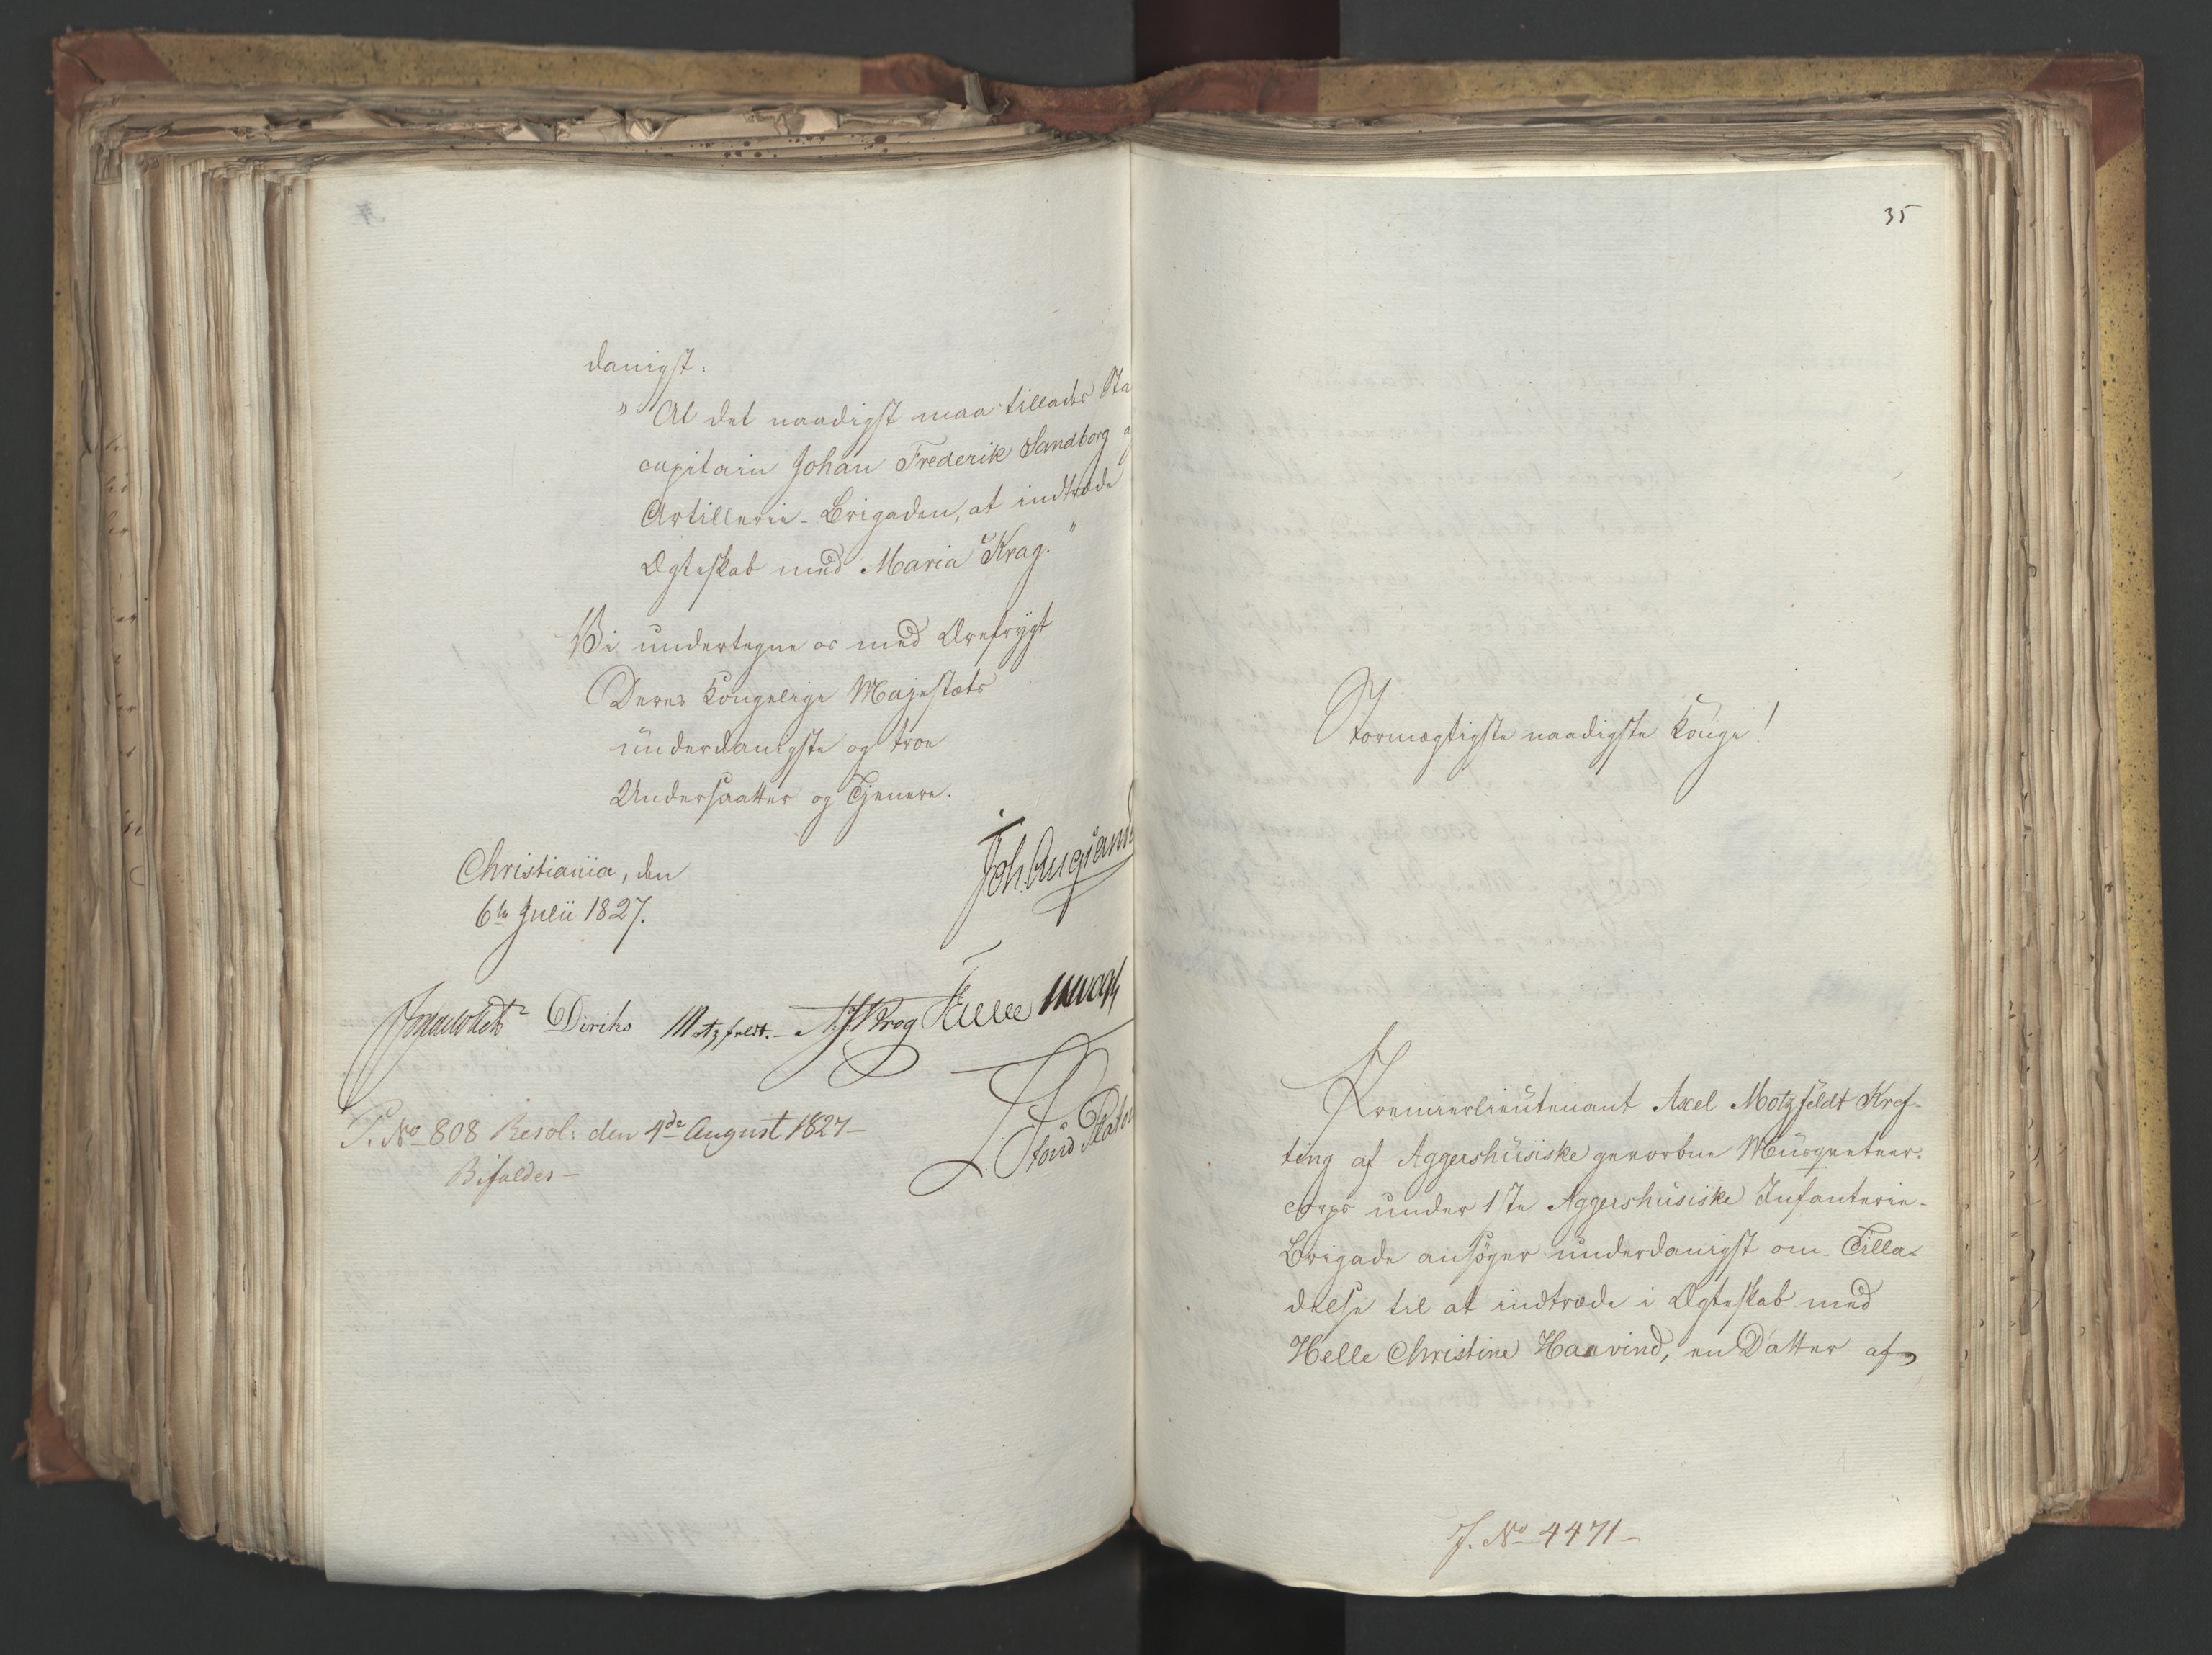 danigst:
" At det naadigst maa tillades Sta
capitain Johan Frederik Sandborg
Artillerie-Brigaden, at indtræde
Ægteskab med Maria Krag."
Vi undertegne os med Ærefrygt
Deres Kongelige Majestæts
underdanigste og troe
Undersaatter og Tjenere.
Christiania, den
6te Julii 1827.
Joh. Aug: Sand
Diriks Motzfeldt. Krog
P. No 808 Resol: den 4de August 1827-
Bifaldes-
35
Stormægtigste naadigste Konge!
Premierlieutenant Axel Motzfeldt Kref-
ting af Aggershusiske gevorbne Musqueteer-
corps under 1ste Aggershusiske Infanterie-
Brigade ansøger underdanigst om Tilla-
delse til at indtræde i Ægteskab med
Helle Christine Haavind, en Datter af
J. No 4471-